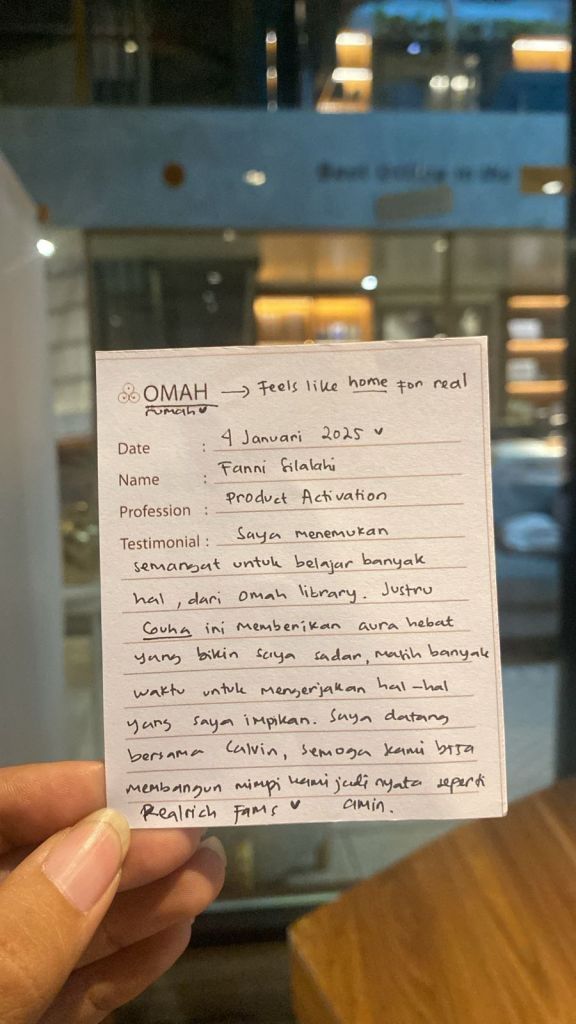 Best Office in the
OMAH → Feels like home for real
rumah
Date : 4 Januari 2025
Name : Fanni Silalahi
Profession : Product Activation
Testimonial : Saya menemukan
semangat untuk belajar banyak
hal, dari omah library. Justru
ini memberikan aura hebat
yang bikin saya sadar, masih banyak
waktu untuk mengerjakan hal-hal
yang saya impikan. Saya datang
bersama Calvin, semoga kami bisa
membangun mimpi kami jadi nyata seperti
Realrich Fams ♥ amin.